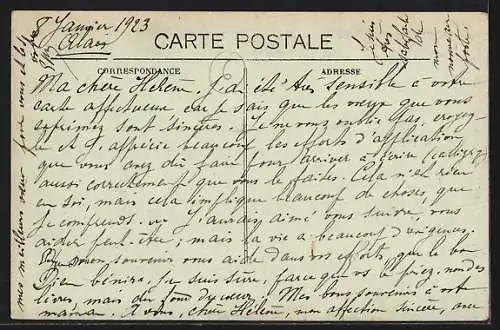 8 Janvier 1923
Alais
CARTE POSTALE
CORRESPONDANCE
ADRESSE
Ma chère Hélène, J'ai été très sensible à votre
carte affectueuse car je sais que les vœux que vous
exprimez sont sincères. Je ne vous oublie pas, croyez-
le et j'apprécie beaucoup les efforts d'application
que vous avez dû faire pour arriver à écrire
aussi correctement que vous le faites. Cela n'est rien
en soi, mais cela implique beaucoup de choses, que
je comprends. J'aurais aimé vous suivre, vous
aider peut-être ; mais la vie a beaucoup d'exigences.
mon souvenir vous aide dans vos efforts, que le bon
Dieu bénira, j'en suis sûre, parce que vs le priez, non des
lèvres, mais du fond du cœur. Mes bons souvenirs à votre
maman. A vous, chère Hélène, mon affection sincère, avec
mes meilleurs vœux pour vous et
je suis
très
satisfaite
de
mon
nouveau
poste.